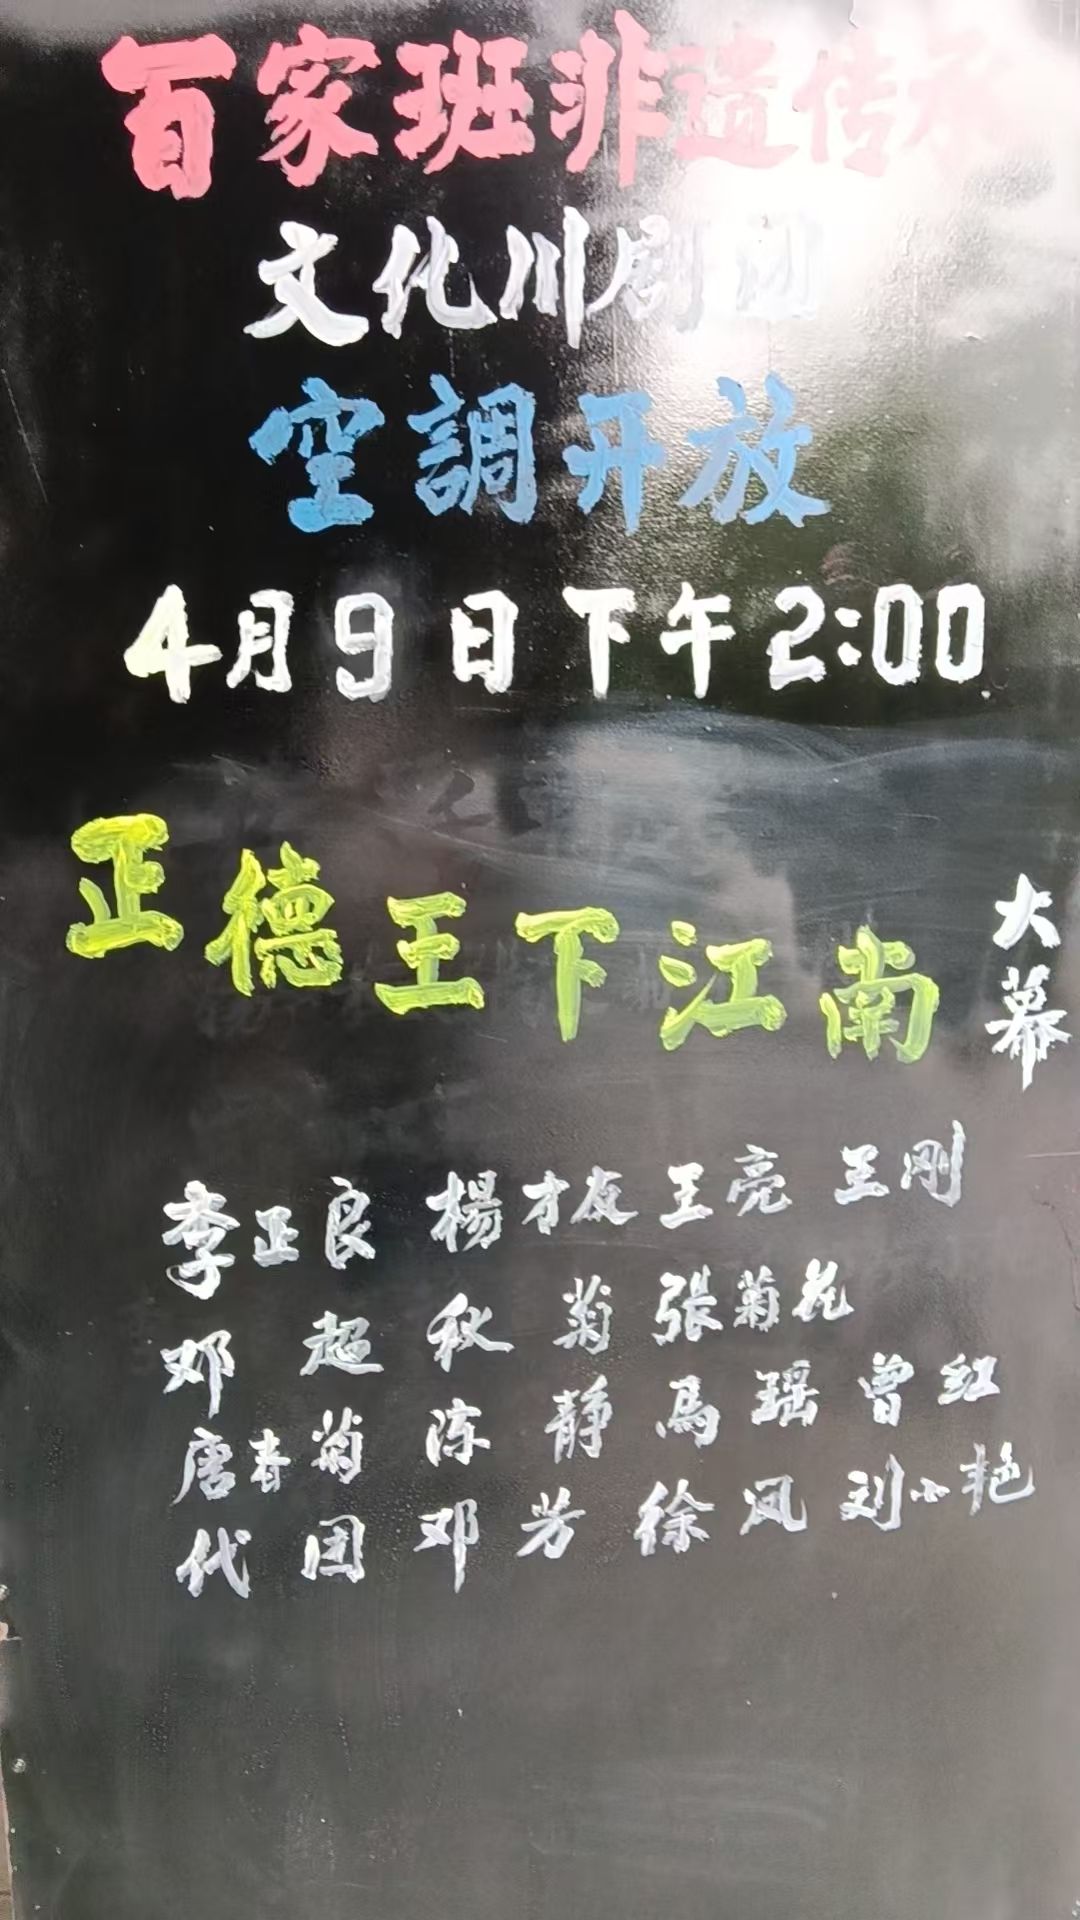 百家班非遗传承
文化川剧团
空調开放
4月9日下午2:00
正德王下江南 大幕
李正良 楊才友 王亮 王刚
邓超 秋菊 張菊花
唐春菊 陈静 馬瑶 曾红
代团 邓芳 徐凤 刘小艳